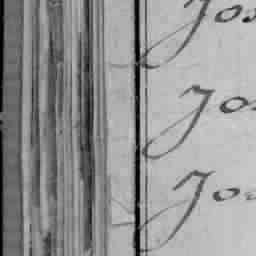 Jos
Jo
Jo